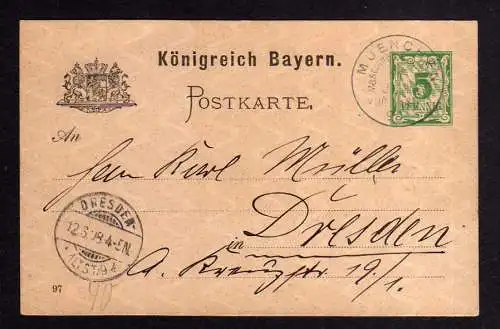 Königreich Bayern.
MUENCHEN
5
PFENNIG
POSTKARTE.
An
Herrn Karl Müller
DRESDEN
12.3.98.4-5N.
Dresden
in
A. Kreuzstr 19/1.
97